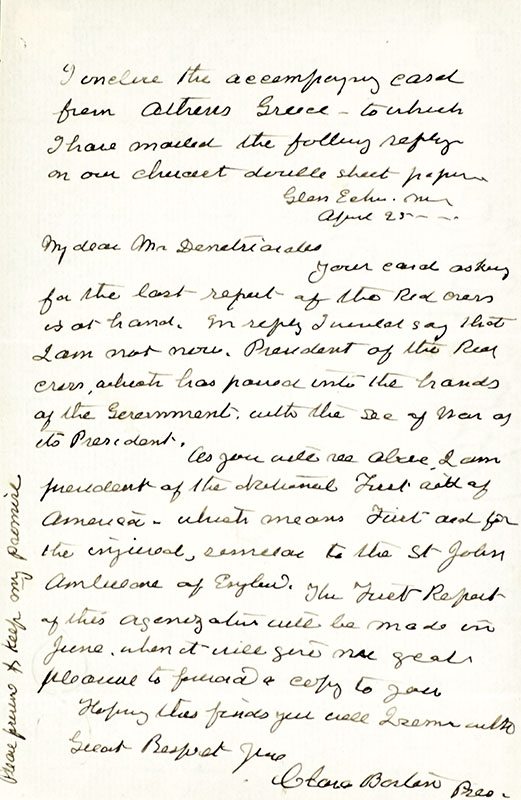 I enclose the accompanying card
from Athens Greece – to which
I have mailed the following reply
on our chucset double sheet paper
Glen Echo. Md
April 25 – – .
My dear Mr Demetriades
Your card asking
for the last report of the Red Cross
is at hand. In reply I would say that
I am not now. President of the Red
Cross, which has passed into the hands
of the Government. with the Sec of War as
its President.
As you will see above, I am
president of the National First Aid of
America – which means First aid for
the injured, similar to the St John
Ambulance of England. The First Report
of this organization will be made in
June. when it will give me great
pleasure to forward a copy to you
Hoping this finds you well I remain with
Great Respect Yours
Clara Barton Pres.
Please preserve & keep my promise